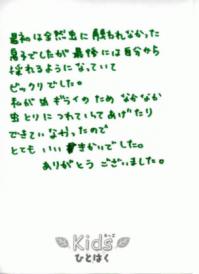 最初は全然虫に触れなかった
息子でしたが最後には自分から
採れるようになっていて
ビックリでした。
私が虫ギライのため なかなか
虫とりに つれていってあげたり
できていなかったので
とても いい きかいでした。
ありがとう ございました。
Kids
キッズ
ひとはく